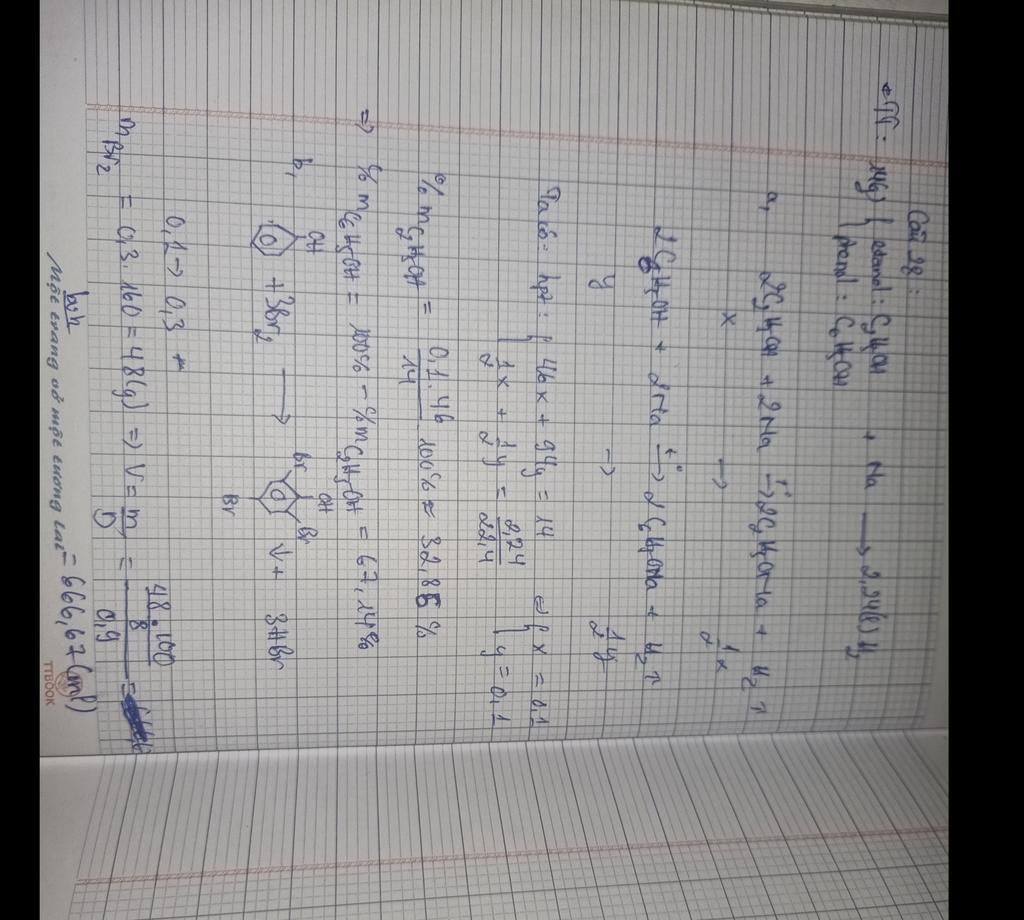 Câu 28:
* TT: 14(g) { etanol: C2H5OH + Na → 2,24(l) H2
{ phenol: C6H5OH
a, 2C2H5OH + 2Na t°→ 2C2H5ONa + H2↑
x → 1/2 x
2C6H5OH + 2Na t°→ 2C6H5ONa + H2↑
y → 1/2 y
Ta có: hpt: { 46x + 94y = 14 ⇔ { x = 0,1
{ 1/2 x + 1/2 y = 2,24/22,4 { y = 0,1
% mC2H5OH = 0,1.46/14 . 100% ≈ 32,86 %
⇒ % mC6H5OH = 100% - % mC2H5OH = 67,14%
b, OH + 3Br2 → Br OH Br Br ↓ + 3HBr
0,1 → 0,3
mBr2 = 0,3.160 = 48(g) ⇒ V = m/D = 48.100/8 / 0,9 =
= 666,67 (ml)
TTBOOK